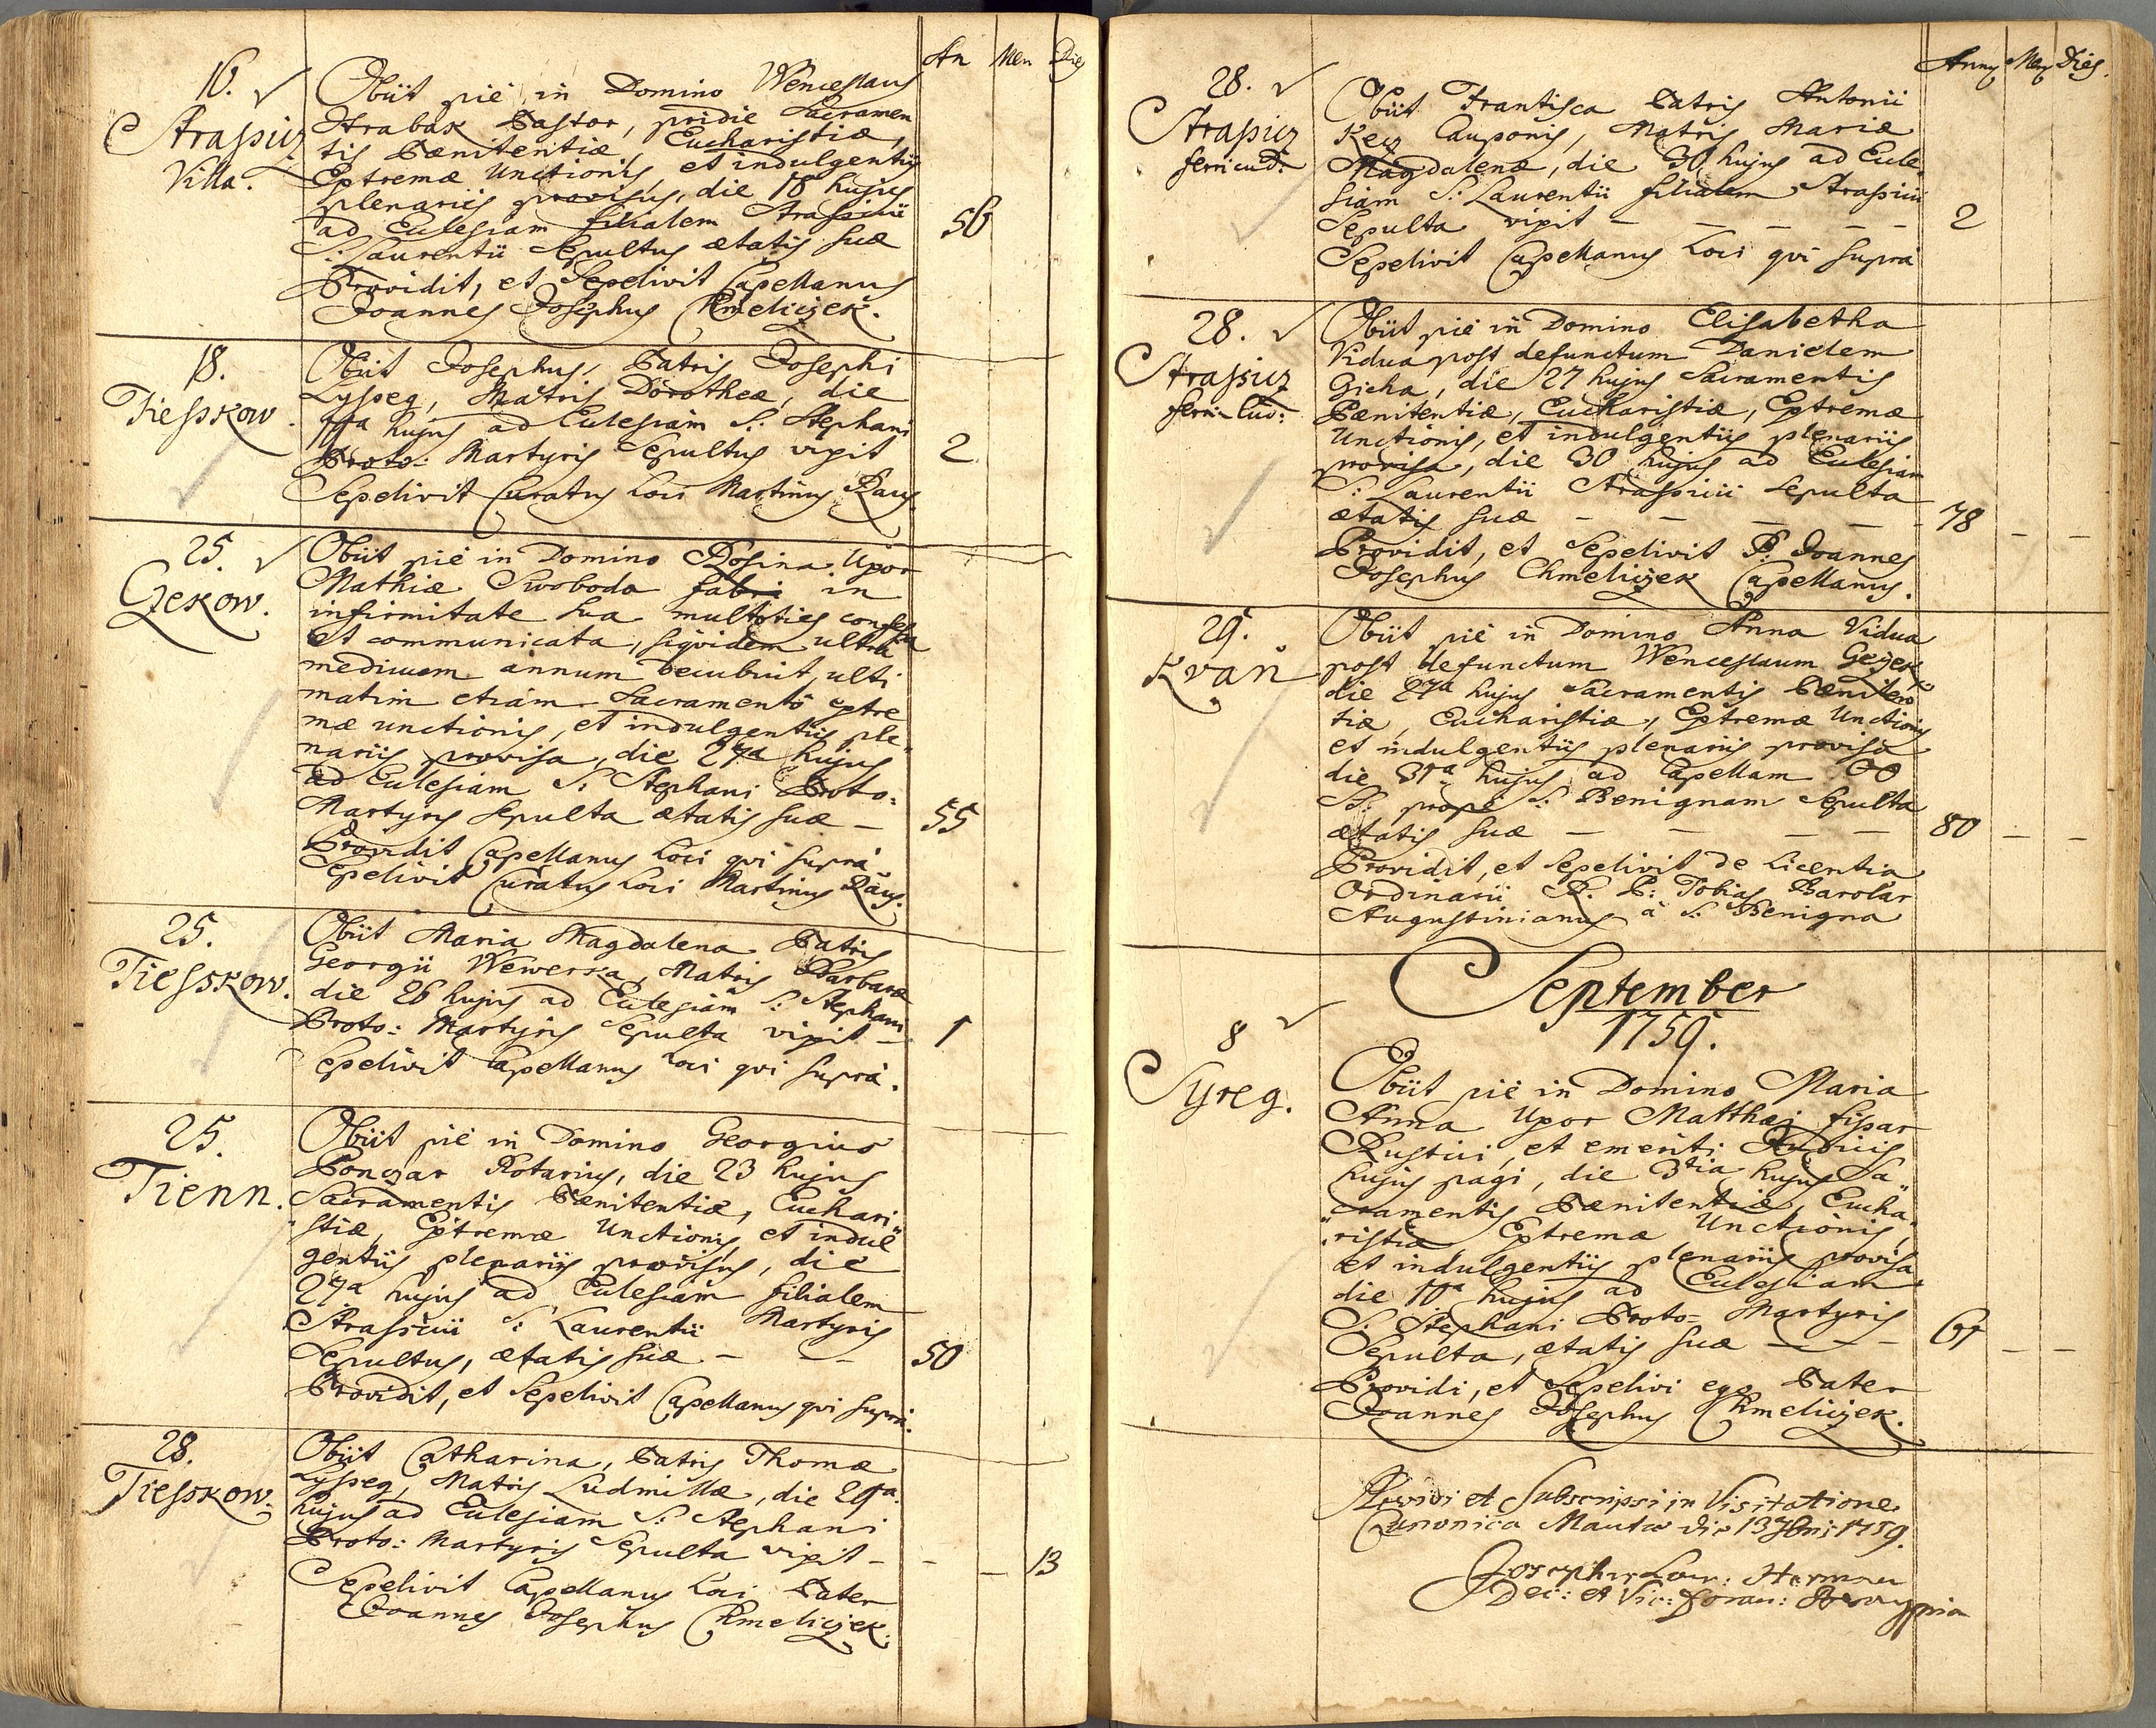 An Men Dies
16.
Strassicz
Villa.
Obiit piè in Domino Wenceslaus
Hrabak Pastor, pridie Sacramen
tis Pænitentiæ, Eucharistiæ,
Extremæ Unctionis, et indulgentiis
plenariis provisus, die 18 hujus
ad Eulesiam filialem Strassicii
S: Laurentii Sepultus ætatis suæ 56
Providit, et Sepelivit Capellanus
Joannes Josephus Chmeliczek.
18.
Tiesskow.
Obiit Josephus, Patris Josephi
Lysseg, Matris Dorotheæ, die
hujus ad Eulesiam S: Stephani
Proto: Martyris Sepultus vixit 2
Sepelivit Curatus Loci Martinus Raus.
25.
Czekow.
Obiit piè in Domino Rosina Uxor
Mathiæ Swoboda fabri in
infirmitate sua multoties confessa
et communicata, siqvidem ultra
medium annum decubuit, ulti
matim etiam Sacramento extre
mæ unctionis, et indulgentiis ple„
nariis provisa, die 27a hujus
ad Eulesiam S: Stephani Proto:
Martyris sepulta ætatis suæ — 55
Providit Capellanus Loci qvi suprà
Sepelivit Curatus Loci Martinus Raus.
25.
Tiesskow.
Obiit Maria Magdalena Patris
Georgii Wewerka, Matris Barbaræ
die 26 hujus ad Eulesiam S: Stephani
Proto: Martyris Sepulta vixit — 1
Sepelivit Capellanus Loci qvi suprà.
25.
Tienn.
Obiit piè in Domino Georgius
Ponczar Rotarius, die 23 hujus
Sacramentis Pænitentiæ, Euchari„
„stiæ, Extremæ Unctionis, et indul
gentiis plenariis provisus, die
27a hujus ad Eulesiam filialem
Strassicii S: Laurentii Martyris
Sepultus, ætatis suæ — — — 50
Providit, et Sepelivit Capellanus qvi suprà.
28.
Tiesskow.
Obiit Catharina, Patris Thomæ
Lysseg, Matris Ludmillæ, die 29a
hujus ad Eulesiam S: Stephani
Proto: Martyris Sepulta vixit — — — 13
Sepelivit Capellanus Loci Pater
Joannes Josephus Chmeliczek.
Anny Mens Dies.
28.
Strassicz
ferricud:
Obiit Frantisca Patris Antonii
Kecz Cauponis, Matris Mariæ
Magdalenæ, die 30 hujus ad Eule„
siam S: Laurentii filialem Strassicii
Sepulta vixit — — — — — 2
Sepelivit Capellanus Loci qvi suprà
28.
Strassicz
ferri Cud:
Obiit piè in Domino Elisabetha
Vidua post defunctum Danielem
Gicha, die 27 hujus Sacramentis
Pænitentiæ, Eucharistiæ, Extremæ
Unctionis, et indulgentiis plenariis
provisa, die 30 hujus ad Eulesiam
S: Laurentii Strassicii sepulta
ætatis suæ — — — — 78 — —
Providit, et Sepelivit P. Joannes
Josephus Chmeliczek Capellanus.
29.
Kvań
Obiit piè in Domino Anna Vidua
post defunctum Wenceslaum
die 27a hujus Sacramentis Pæniten
tiæ, Eucharistiæ, Extremæ Unctionis
et indulgentiis plenariis provisa
die 31a hujus ad Capellam OO
SS: propè S: Benignam Sepulta
ætatis suæ — — — — 80 — —
Providit, et Sepelivit de Licentia
Ordinarii R. P: Tobias Barolar
Augustinianus à S. Benigna
September
1759.
8
Syreg.
Obiit piè in Domino Maria
Anna Uxor Matthæi fissar
Rustici, et emeriti Judicis
hujus pagi, die 3tia hujus Sa„
cramentis Pænitentiæ, Eucha„
„ristiæ Extremæ Unctionis,
et indulgentiis plenariis provisa
die 10a hujus ad Eulesiam
S. Stephani Proto: Martyris
Sepulta, ætatis suæ — — — 61 — —
Providi, et Sepelivi ego Pater
Joannes Josephus Chmeliczek.
Revidi et Subscripsi in Visitatione
Canonica Mautæ die 13 7bris 1759.
Josephus Herman
Dec: et Vic: foran: